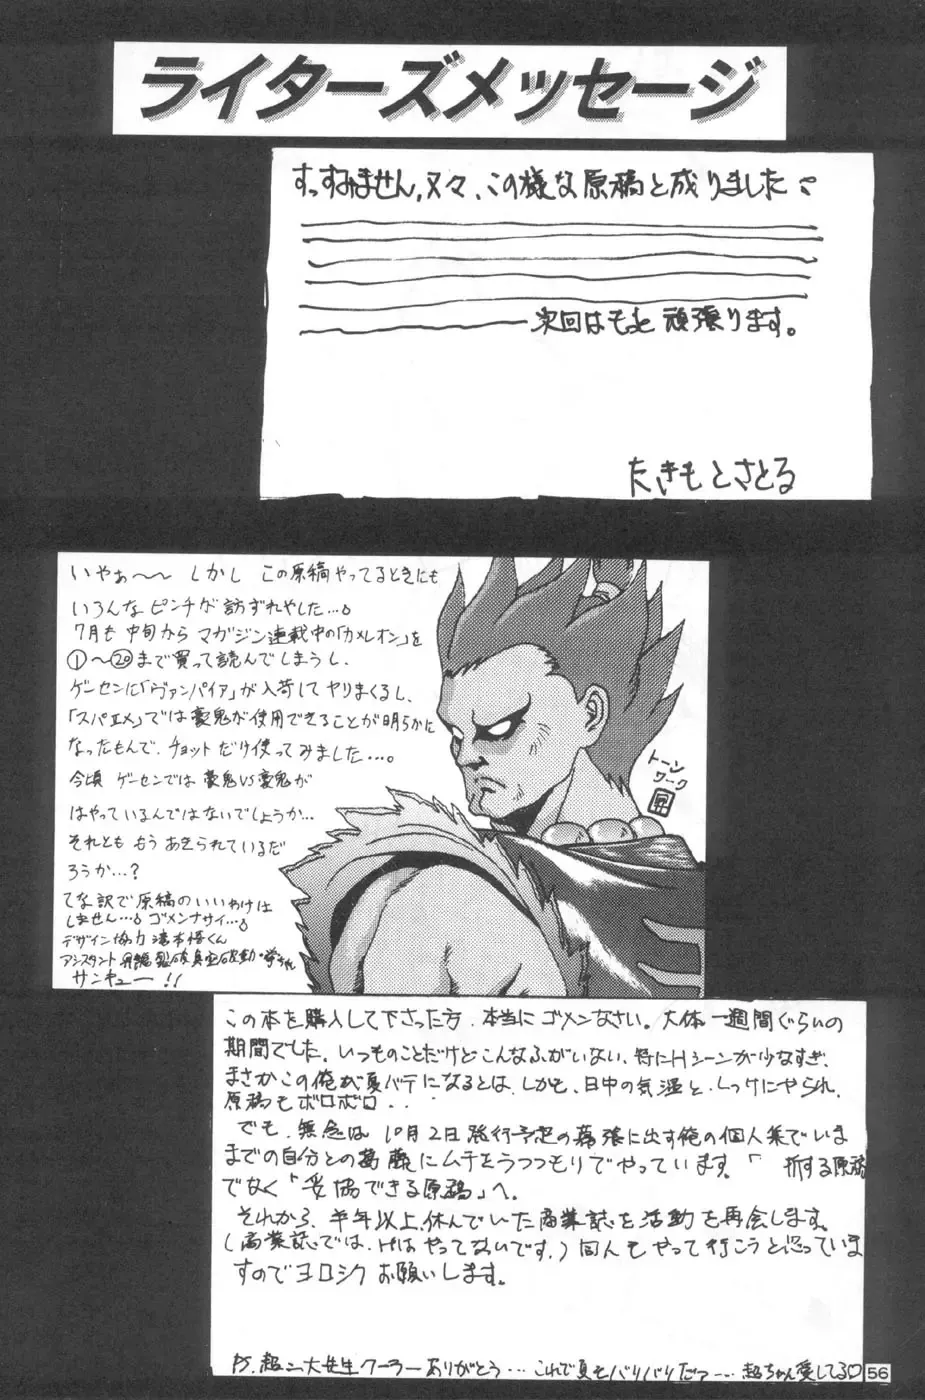 ライターズメッセージ
すっすみません。又々、この様な原稿と成りました
次回はもっと頑張ります。
たきもとさとる
いやぁ〜〜 しかし この原稿やってるときにも
いろんなピンチが訪ずれやした…。
7月も中旬から マガジン連載中の「カメレオン」を
①〜⑳まで買って読んでしまうし、
ゲーセンに「ヴァンパイア」が入荷してヤリまくるし、
「スパエメ」では豪鬼が使用できることが明らかに
なったもんで、チョットだけ使ってみました…。
今頃 ゲーセンでは豪鬼VS豪鬼が
はやっているんではないでしょうか…
それとも もう あきられているだ
ろうか…?
てな訳で原稿のいいわけは
しません…。ゴメンナサイ…。
デザイン協力 滝本悟くん
アシスタント
サンキュー!!
トーン
ワーク
この本を購入して下さった方、本当にゴメンなさい。大体一週間ぐらいの
期間でした。いつものことだけどこんなふがいない、特にHシーンが少なすぎ、
まさかこの俺が夏バテになるとは、しかも、日中の気温と、しっけにやられ、
原稿もボロボロ・・
でも、無念は10月2日発行予定の幕張に出す俺の個人集でいま
までの自分との葛藤にムチをうつつもりでやっています。「 折する原稿
でなく「妥協できる原稿」へ。
それから、半年以上、休んでいた商業誌を活動を再会します。
(商業誌では、Hはやってないです。)同人もやって行こうと思っていま
すのでヨロシクお願いします。
PS.超二大先生クーラーありがとう…これで夏もバリバリだァ…超ちゃん愛してる♡
56